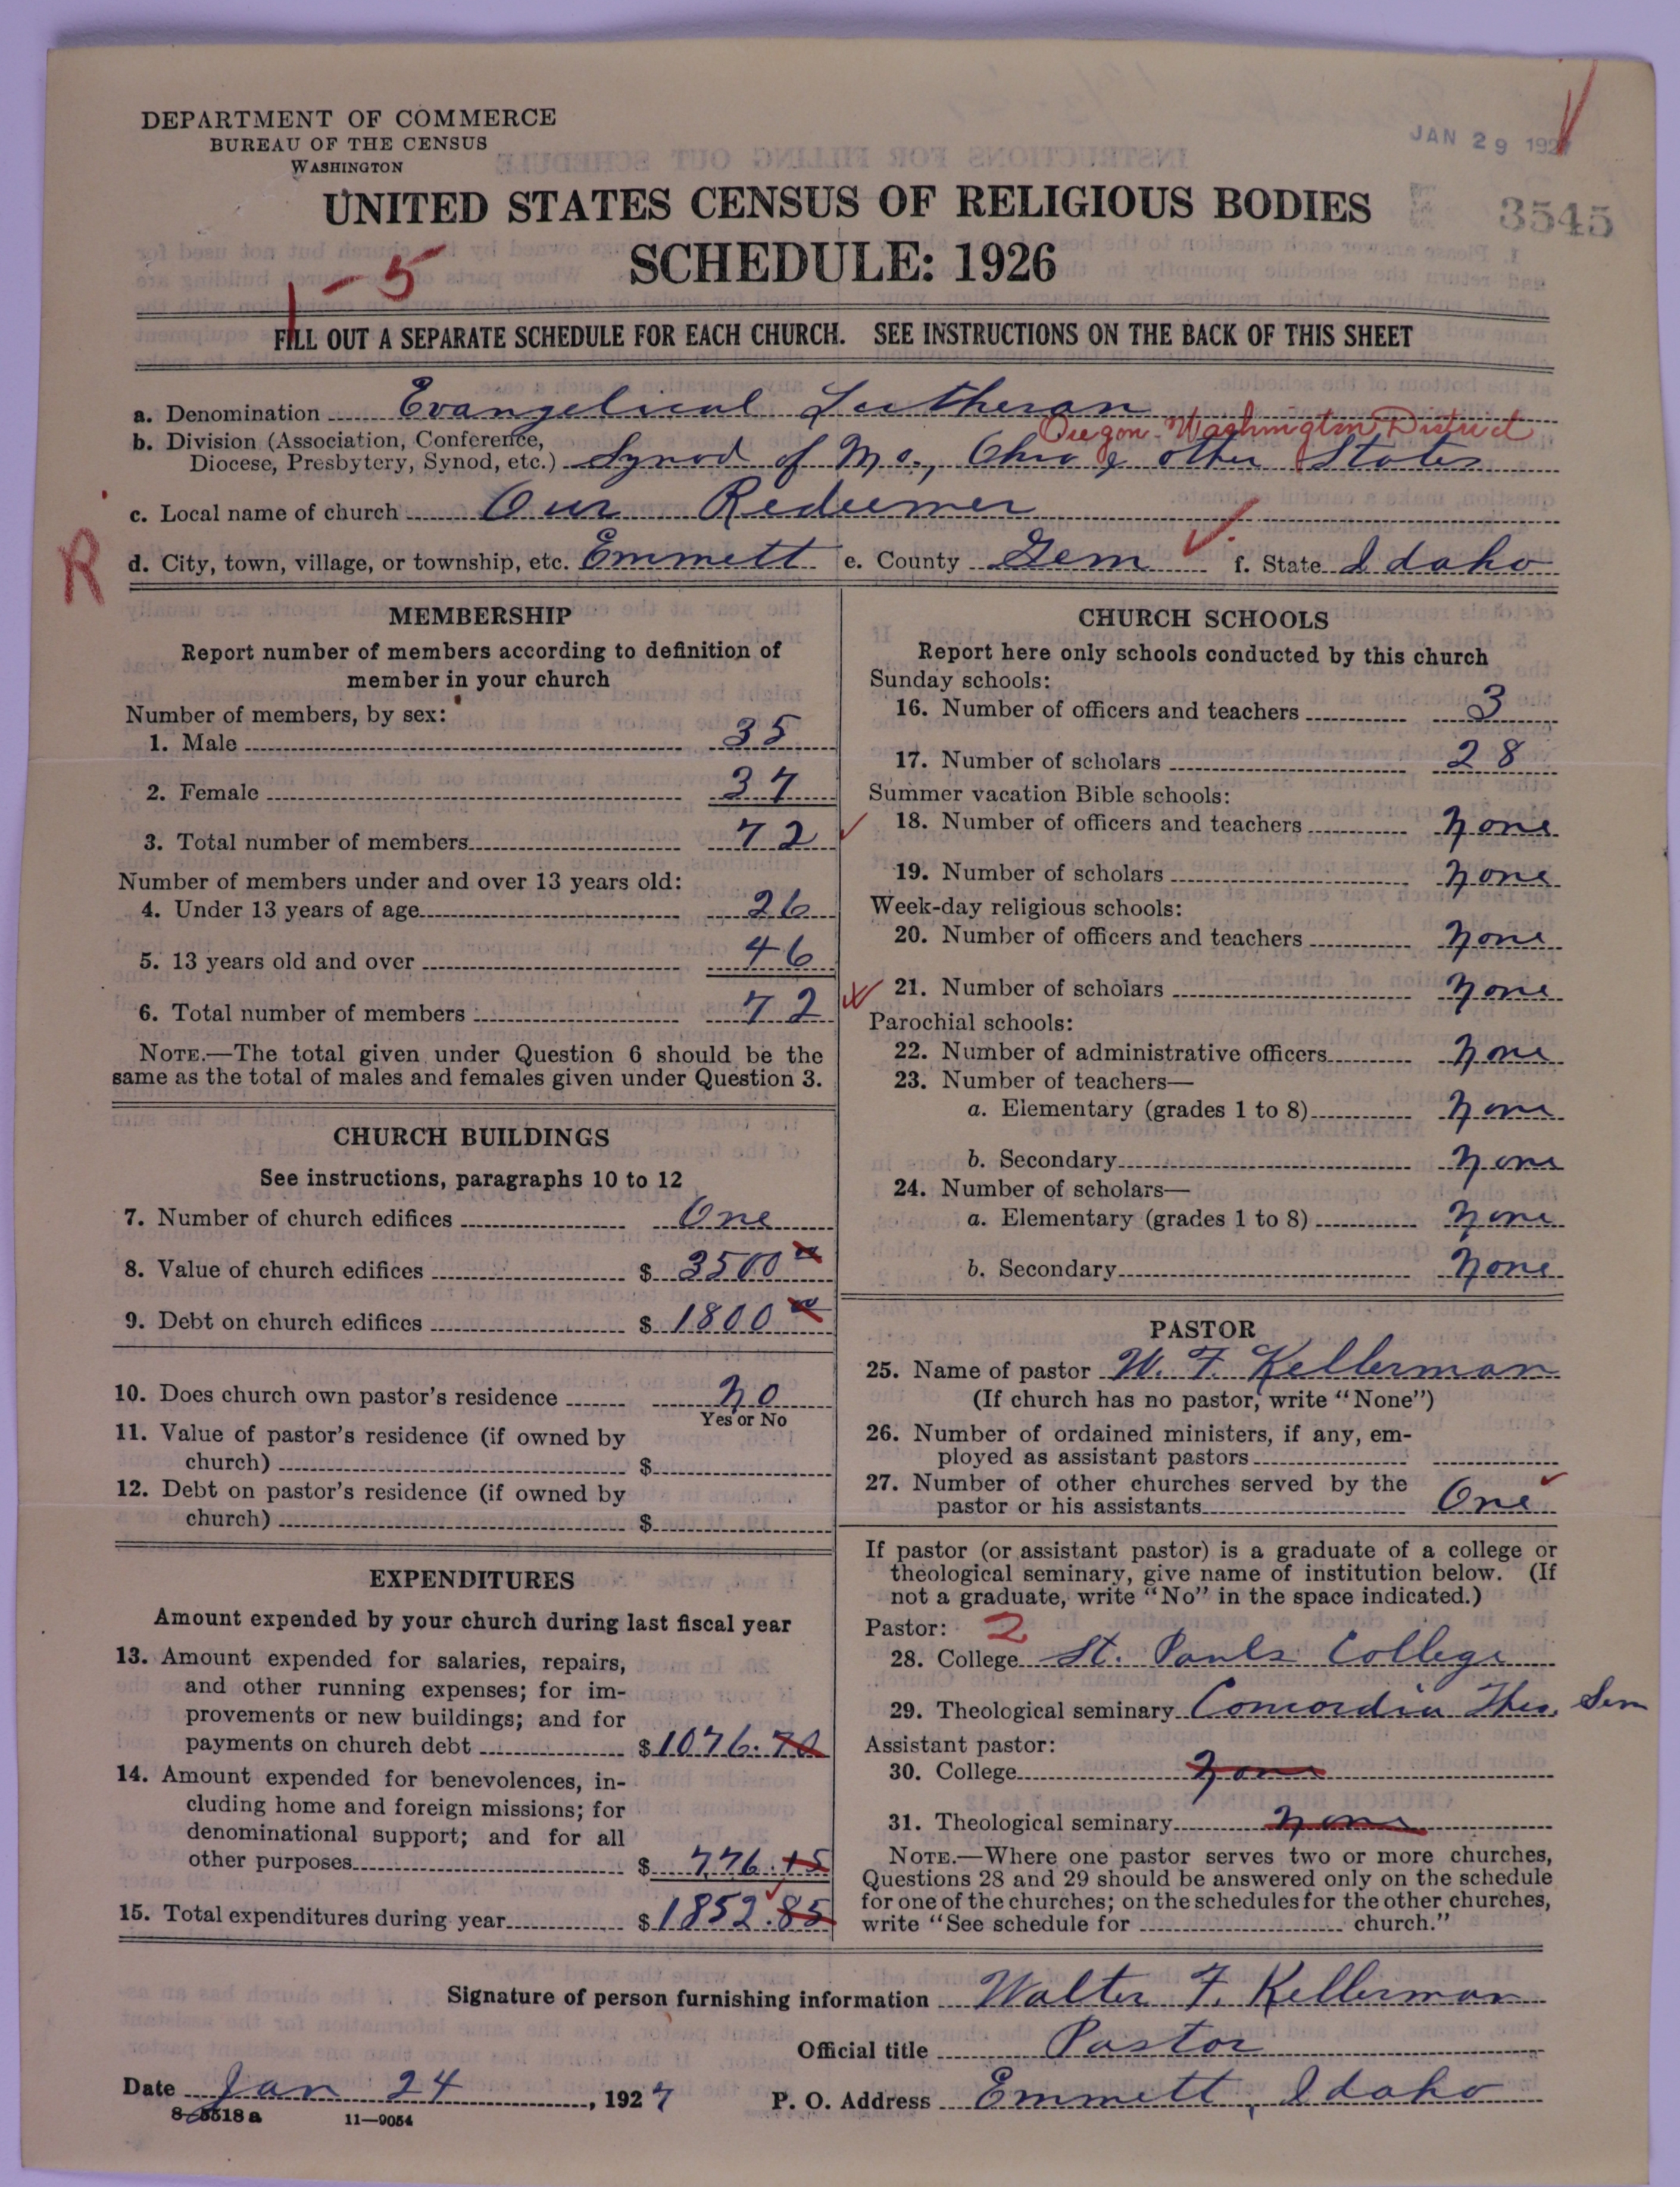 DEPARTMENT OF COMMERCE
BUREAU OF THE CENSUS
WASHINGTON
JAN 29 192
UNITED STATES CENSUS OF RELIGIOUS BODIES
3545
SCHEDULE: 1926
1-5
FILL OUT A SEPARATE SCHEDULE FOR EACH CHURCH. SEE INSTRUCTIONS ON THE BACK OF THIS SHEET
a. Denomination Evangelical Lutheran
Oregon-Washington District
b. Division (Association, Conference,
Diocese, Presbytery, Synod, etc.) Synod of Mo., Ohio & other States
c. Local name of church Our Redeemer
R
d. City, town, village, or township, etc. Emmett e. County Gem f. State Idaho
MEMBERSHIP
Report number of members according to definition of
member in your church
Number of members, by sex:
1. Male 35
2. Female 37
3. Total number of members 72
Number of members under and over 13 years old:
4. Under 13 years of age 26
5. 13 years old and over 46
6. Total number of members 72
NOTE.—The total given under Question 6 should be the
same as the total of males and females given under Question 3.
CHURCH BUILDINGS
See instructions, paragraphs 10 to 12
7. Number of church edifices One
8. Value of church edifices $ 3500
9. Debt on church edifices $ 1800
10. Does church own pastor's residence no
Yes or No
11. Value of pastor's residence (if owned by
church) $
12. Debt on pastor's residence (if owned by
church) $
EXPENDITURES
Amount expended by your church during last fiscal year
13. Amount expended for salaries, repairs,
and other running expenses; for im-
provements or new buildings; and for
payments on church debt $ 1076.70
14. Amount expended for benevolences, in-
cluding home and foreign missions; for
denominational support; and for all
other purposes $ 776.15
15. Total expenditures during year $ 1852.85
CHURCH SCHOOLS
Report here only schools conducted by this church
Sunday schools:
16. Number of officers and teachers 3
17. Number of scholars 28
Summer vacation Bible schools:
18. Number of officers and teachers none
19. Number of scholars none
Week-day religious schools:
20. Number of officers and teachers none
21. Number of scholars none
Parochial schools:
22. Number of administrative officers none
23. Number of teachers—
a. Elementary (grades 1 to 8) none
b. Secondary none
24. Number of scholars—
a. Elementary (grades 1 to 8) none
b. Secondary none
PASTOR
25. Name of pastor W. F. Kellerman
(If church has no pastor, write "None")
26. Number of ordained ministers, if any, em-
ployed as assistant pastors
27. Number of other churches served by the
pastor or his assistants One
If pastor (or assistant pastor) is a graduate of a college or
theological seminary, give name of institution below. (If
not a graduate, write "No" in the space indicated.)
Pastor: 2
28. College St. Pauls College
29. Theological seminary Concordia Theo. Sem
Assistant pastor:
30. College none
31. Theological seminary none
NOTE.—Where one pastor serves two or more churches,
Questions 28 and 29 should be answered only on the schedule
for one of the churches; on the schedules for the other churches,
write "See schedule for church."
Signature of person furnishing information Walter F. Kellerman
Official title Pastor
Date Jan 24, 1927 P. O. Address Emmett, Idaho
8-5518 a 11—9054